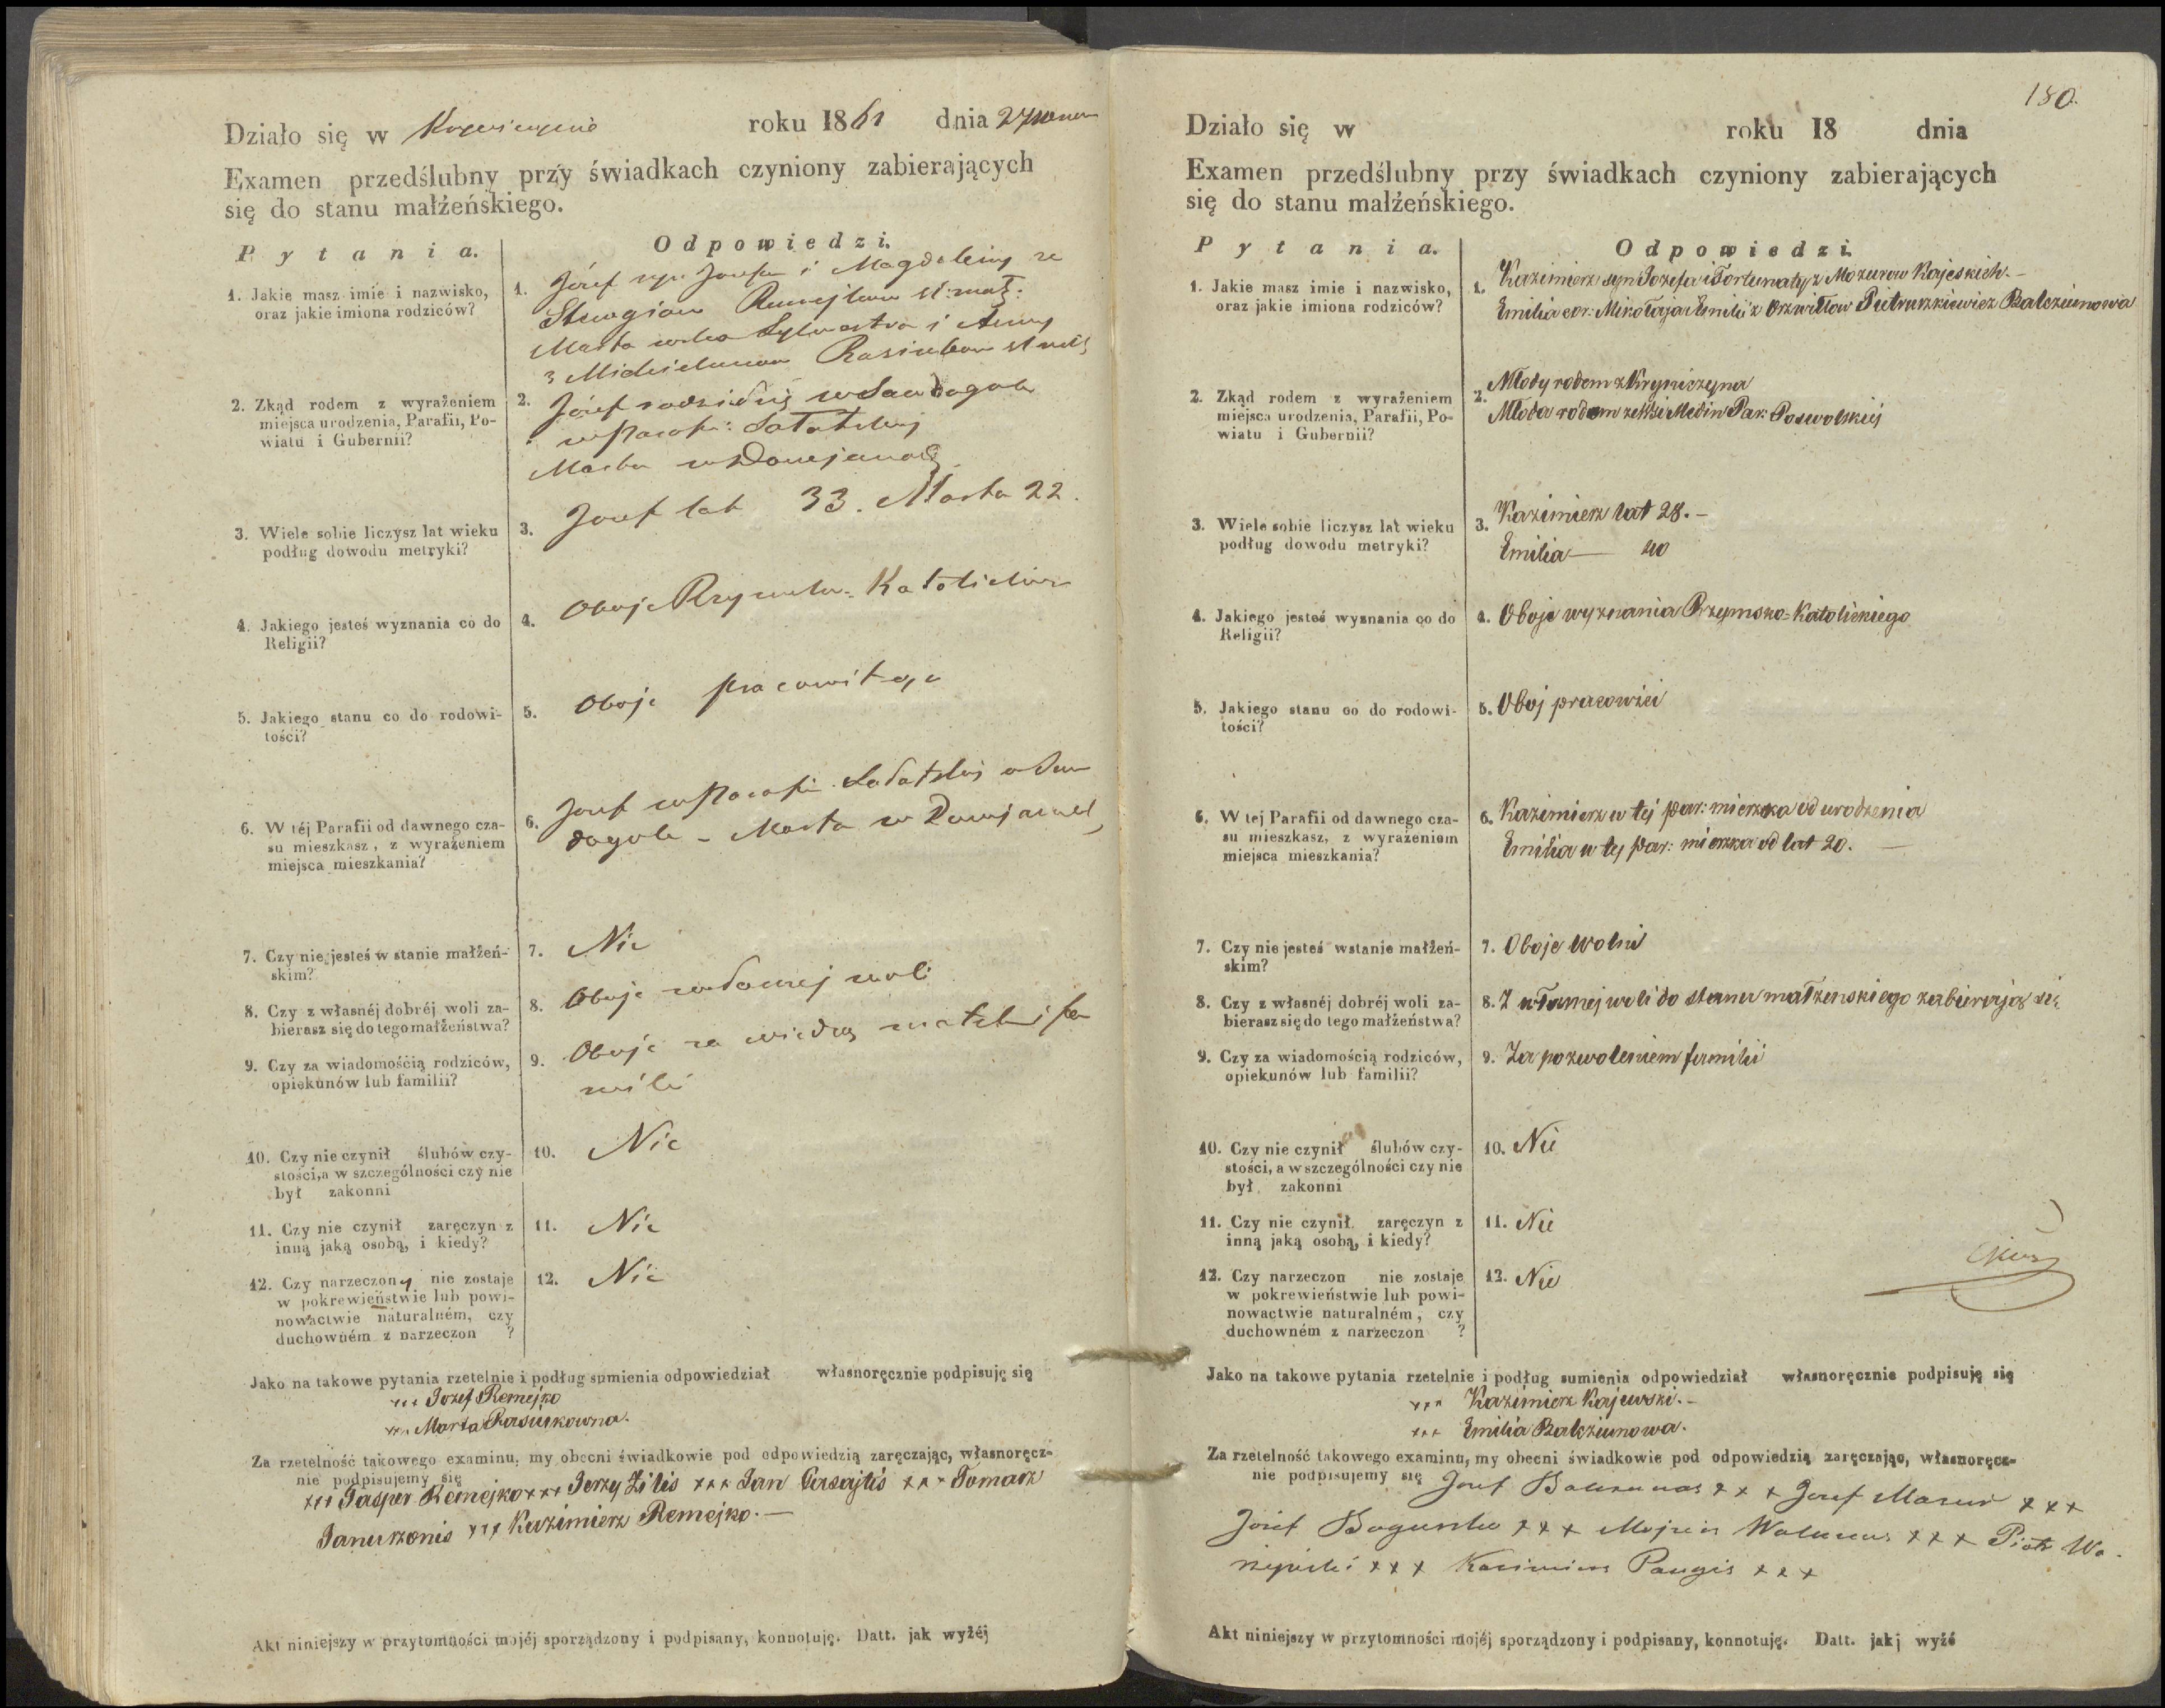 Działo się w Krywiczynie roku 1861 dnia 27
Examen przedślubny przy świadkach czyniony zabierających
się do stanu małżeńskiego.
Pytania. Odpowiedzi.
1. Jakie masz imie i nazwisko,
oraz jakie imiona rodziców?
1. Józef syn Jozefa i Magdaleny ze
Remejkow
Marta corka Sylwestra i Anny
z
2. Zkąd rodem z wyrażeniem
miejsca urodzenia, Parafii, Po-
wiatu i Gubernii?
2. Józef
w Parafii:
Marta
3. Wiele sobie liczysz lat wieku
podług dowodu metryki?
3. Jozef lat 33. Marta 22.
4. Jakiego jesteś wyznania co do
Religii?
4. Oboje Rzymsko-Katolickiego
5. Jakiego stanu co do rodowi-
tości?
5. Oboje pracowitego
6. W téj Parafii od dawnego cza-
su mieszkasz, z wyrażeniem
miejsca mieszkania?
6. Jozef w Parafii
dogola - Marta w
7. Czy nie jesteś w stanie małżeń-
skim?
7. Nie
8. Czy z własnéj dobréj woli za-
bierasz się do tego małżeństwa?
8. Oboje woli
9. Czy za wiadomośćią rodziców,
opiekunów lub familii?
9. Oboje za wiedzą matek i fa
milii
10. Czy nie czynił ślubów czy-
stości, a w szczególności czy nie
był zakonni
10. Nie
11. Czy nie czynił zaręczyn z
inną jaką osobą, i kiedy?
11. Nie
12. Czy narzeczony nie zostaje
w pokrewieństwie lub powi-
nowactwie naturalném, czy
duchowném z narzeczon ?
12. Nie
Jako na takowe pytania rzetelnie i podług sumienia odpowiedział własnoręcznie podpisuję się
xxx Jozef Remejko
xxx Marta Rasiukowna.
Za rzetelność takowego examinu, my obecni świadkowie pod odpowiedzią zaręczając, własnoręcz-
nie podpisujemy się
xxx Jasper Remejko xxx Jerzy Żilis xxx Jan xxx Tomasz
Januszonis xxx Kazimierz Remejko. —
Akt niniejszy w przytomności mojéj sporządzony i podpisany, konnotuję. Datt. jak wyżéj
180.
Działo się w roku 18 dnia
Examen przedślubny przy świadkach czyniony zabierających
się do stanu małżeńskiego.
Pytania. Odpowiedzi.
1. Jakie masz imie i nazwisko,
oraz jakie imiona rodziców?
1. Kazimierz syn Jozefa i Fortunaty z Mozurow Rajeskich. —
Emilia cor: Mikołaja i Emilii z Pietruszkiewicz Balcziunowa
2. Zkąd rodem z wyrażeniem
miejsca urodzenia, Parafii, Po-
wiatu i Gubernii?
2. Młody rodem z Kryniczyna
Młoda rodem ze Wsi Medin Par. Poswolskiej
3. Wiele sobie liczysz lat wieku
podług dowodu metryki?
3. Kazimierz lat 28. —
Emilia — 20
4. Jakiego jesteś wyznania co do
Religii?
4. Oboje wyznania Rzymsko=Katolickiego
5. Jakiego stanu co do rodowi-
tości?
5. Oboj pracowici
6. W tej Parafii od dawnego cza-
su mieszkasz, z wyrażeniem
miejsca mieszkania?
6. Kazimierz w tej par: mieszka od urodzenia
Emilia w tej par: mieszka od lat 20. —
7. Czy nie jesteś wstanie małżeń-
skim?
7. Oboje wolni
8. Czy z własnéj dobréj woli za-
bierasz się do tego małżeństwa?
8. Z własnej woli do stanu małzenskiego zabierają się
9. Czy za wiadomością rodziców,
opiekunów lub familii?
9. Za pozwoleniem familii
10. Czy nie czynił ślubów czy-
stości, a w szczególności czy nie
był zakonni
10. Nie
11. Czy nie czynił zaręczyn z
inną jaką osobą, i kiedy?
11. Nie
12. Czy narzeczon nie zostaje
w pokrewieństwie lub powi-
nowactwie naturalném, czy
duchowném z narzeczon ?
12. Nie
Jako na takowe pytania rzetelnie i podług sumienia odpowiedział własnoręcznie podpisuję się
xxx Kazimierz Rajewski. —
xxx Emilia Balcziunowa.
Za rzetelność takowego examinu, my obecni świadkowie pod odpowiedzią zaręczając, własnoręcz-
nie podpisujemy się Jozef xxx Jozef Mazur xxx
Józef xxx xxx Piotr Wo-
xxx Kazimierz Pangis xxx
Akt niniejszy w przytomności mojéj sporządzony i podpisany, konnotuję. Datt. jak j wyźé